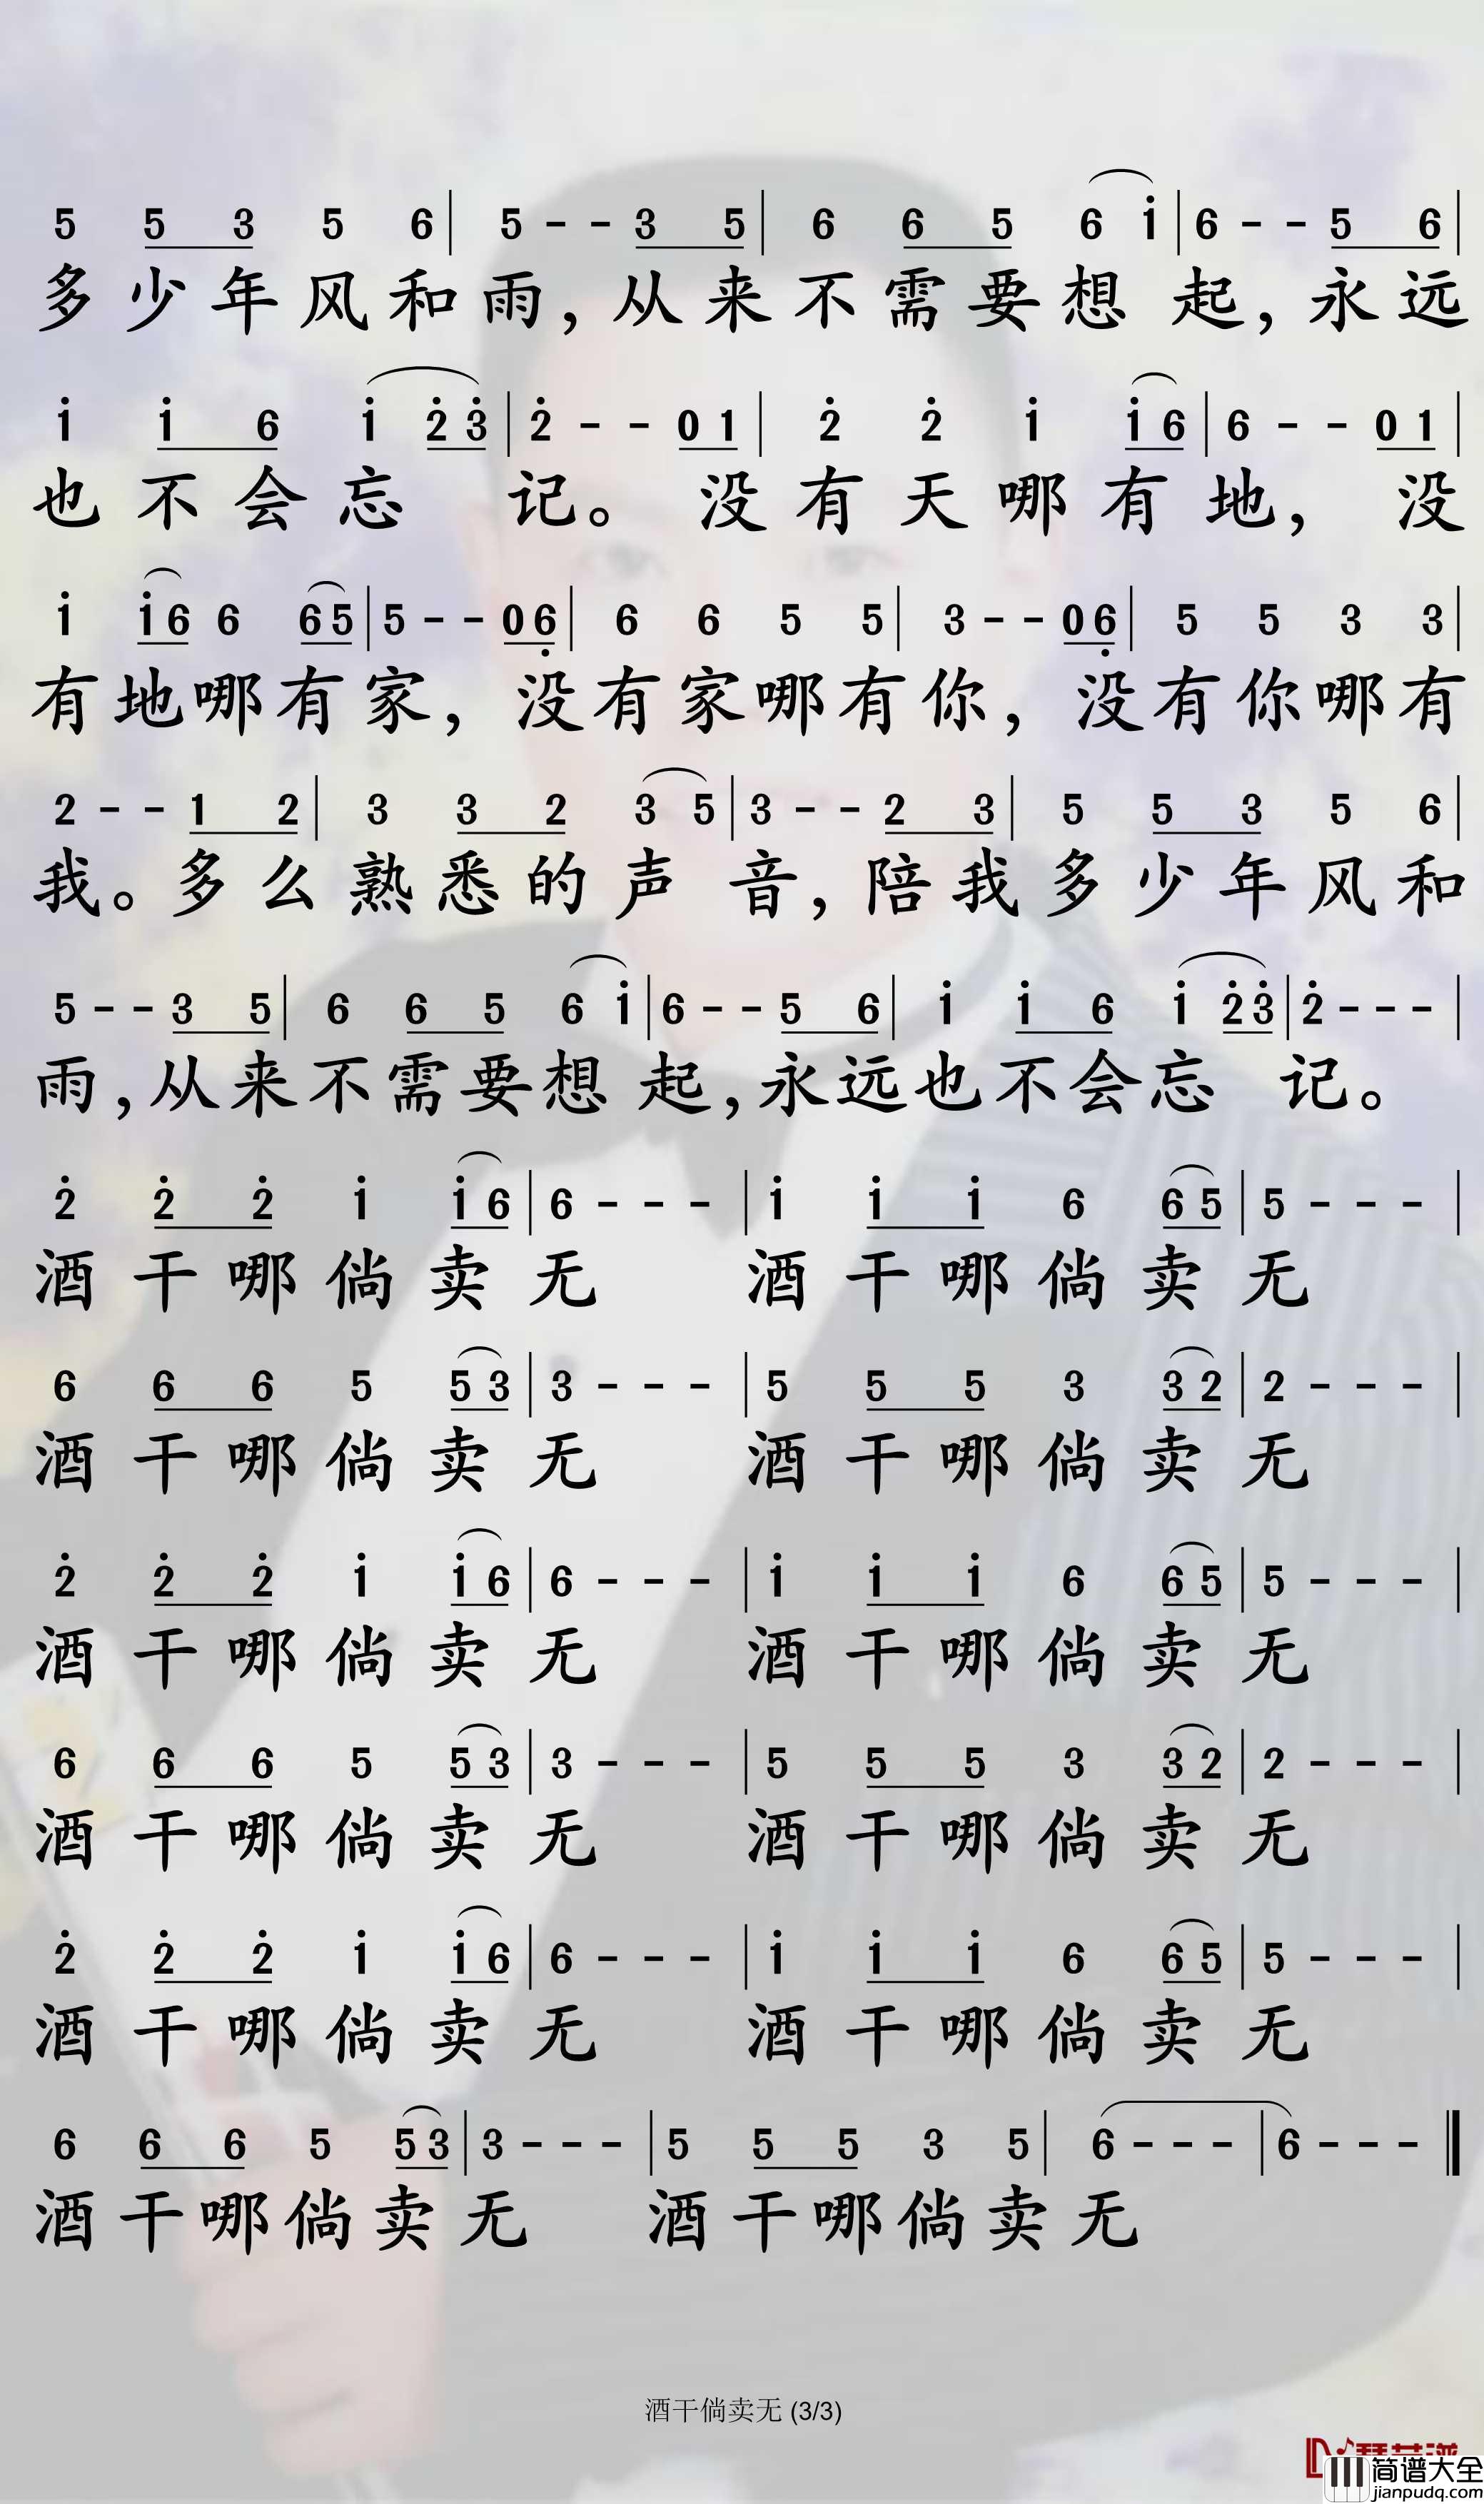 5 5 3 5 6 | 5 - - 3 5 | 6 6 5 6 i̇ | 6 - - 5 6 |
多少年风和雨,从来不需要想起,永远
i̇ i̇ 6 i̇ 2̇ 3̇ | 2̇ - - 0 1 | 2̇ 2̇ i̇ i̇ 6 | 6 - - 0 1 |
也不会忘记。没有天哪有地,没
i̇ i̇ 6 6 6 5 | 5 - - 0 6̣ | 6 6 5 5 | 3 - - 0 6̣ | 5 5 3 3 |
有地哪有家,没有家哪有你,没有你哪有
2 - - 1 2 | 3 3 2 3 5 | 3 - - 2 3 | 5 5 3 5 6 |
我。多么熟悉的声音,陪我多少年风和
5 - - 3 5 | 6 6 5 6 i̇ | 6 - - 5 6 | i̇ i̇ 6 i̇ 2̇ 3̇ | 2̇ - - - |
雨,从来不需要想起,永远也不会忘记。
2̇ 2̇ 2̇ i̇ i̇ 6 | 6 - - - | i̇ i̇ i̇ 6 6 5 | 5 - - - |
酒干哪倘卖无 酒干哪倘卖无
6 6 6 5 5 3 | 3 - - - | 5 5 5 3 3 2 | 2 - - - |
酒干哪倘卖无 酒干哪倘卖无
2̇ 2̇ 2̇ i̇ i̇ 6 | 6 - - - | i̇ i̇ i̇ 6 6 5 | 5 - - - |
酒干哪倘卖无 酒干哪倘卖无
6 6 6 5 5 3 | 3 - - - | 5 5 5 3 3 2 | 2 - - - |
酒干哪倘卖无 酒干哪倘卖无
2̇ 2̇ 2̇ i̇ i̇ 6 | 6 - - - | i̇ i̇ i̇ 6 6 5 | 5 - - - |
酒干哪倘卖无 酒干哪倘卖无
6 6 6 5 5 3 | 3 - - - | 5 5 5 3 5 | 6 - - - | 6 - - - ‖
酒干哪倘卖无 酒干哪倘卖无
酒干倘卖无 (3/3)
简谱大全
jianpudq.com